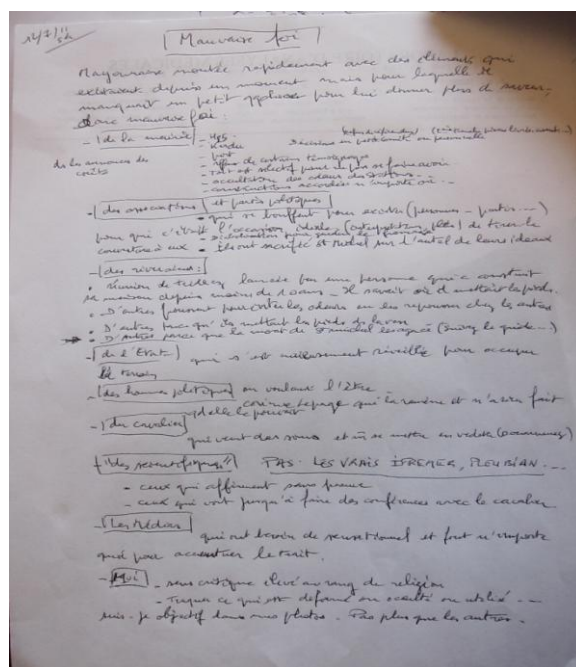 Mauvaise foi
Mayonnaise montée rapidement avec des éléments qui
existaient depuis un moment mais pour laquelle il
manquait un petit quelque pour lui donner plus de saveur,
donc mauvaise foi.
- de la mairie - H2S
- Verdu
dès les annonces des - port
coûts - refus de certains témoignages
- Tri sélectif pour ne pas se faire avoir
- occultation des odeurs des stations
- constructions accordées n'importe où ...
- des associations et partis politiques
- qui se bouffent pour exister (personnes - partis ...)
pour qui c'était l'occasion idéale de tirer la
couverture à eux • ils ont sacrifié St Michel sur l'autel de leurs idéaux
- des riverains :
• réunion de lancée par une personne qui a construit
sa maison depuis moins de 10 ans - Il savait où il mettait les pieds.
• D'autres pour les odeurs en les repoussant chez les autres
• D'autres parce qu'ils mettent les pieds dedans
• D'autres parce que la mort de St Michel les
- de l'Etat qui s'est réveillé pour occuper
le terrain
- des hommes politiques ou voulant l'être
corinne Lepage qui la ramène et n'a rien fait
quand elle le pouvait
- du cavalier
qui veut des sous et à se mettre en vedette
- "des scientifiques" PAS LES VRAIS IFREMER, PLEUBIAN ...
- ceux qui affirment sans preuve
- ceux qui vont jusqu'à faire des conférences avec le cavalier
- Les Médias
qui ont besoin de sensationnel et font n'importe
quoi pour accentuer le trait.
- Moi - sens critique élevé au rang de religion
- Traquer ce qui est déformé ou occulté ou utilisé ...
suis-je objectif dans mes photos. Pas plus que les autres.